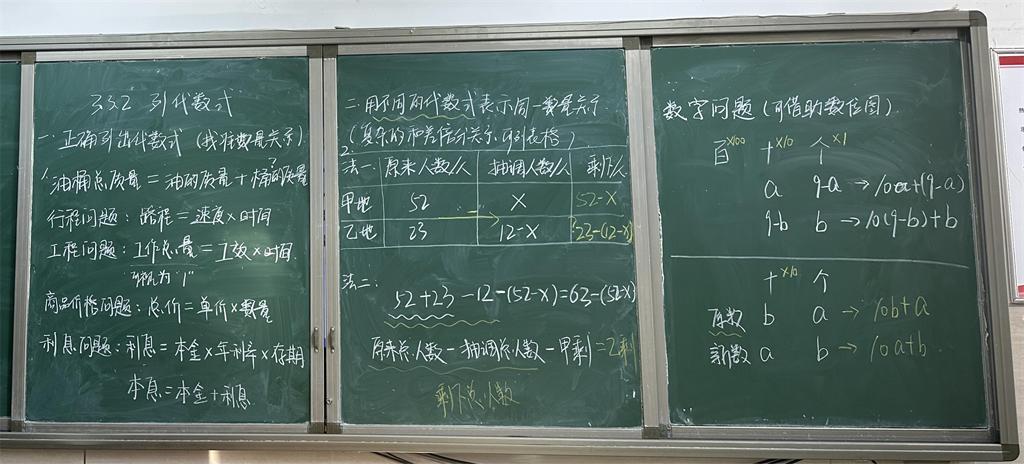 3.3.2 列代数式
一、正确列出代数式（找准数量关系）
1、油桶总质量=油的质量+桶的质量
行程问题：路程=速度×时间
工程问题：工作总量=工效×时间
可视为"1"
商品价格问题：总价=单价×数量
利息问题：利息=本金×年利率×存期
本息=本金+利息
二、用不同的代数式表示同一数量关系
（复杂的和差倍分关系，可列表格）
2、法一 原来人数/人 抽调人数/人 剩下/人
甲地 52 x 52-x
乙地 23 12-x 23-(12-x)
法二：
52+23-12-(52-x)=63-(52-x)
原来总人数-抽调总人数-甲剩=乙剩
剩下总人数
数字问题（可借助数位图）.
百×100 十×10 个×1
a 9-a → 10a+(9-a)
9-b b → 10(9-b)+b
十×10 个
原数 b a → 10b+a
新数 a b → 10a+b